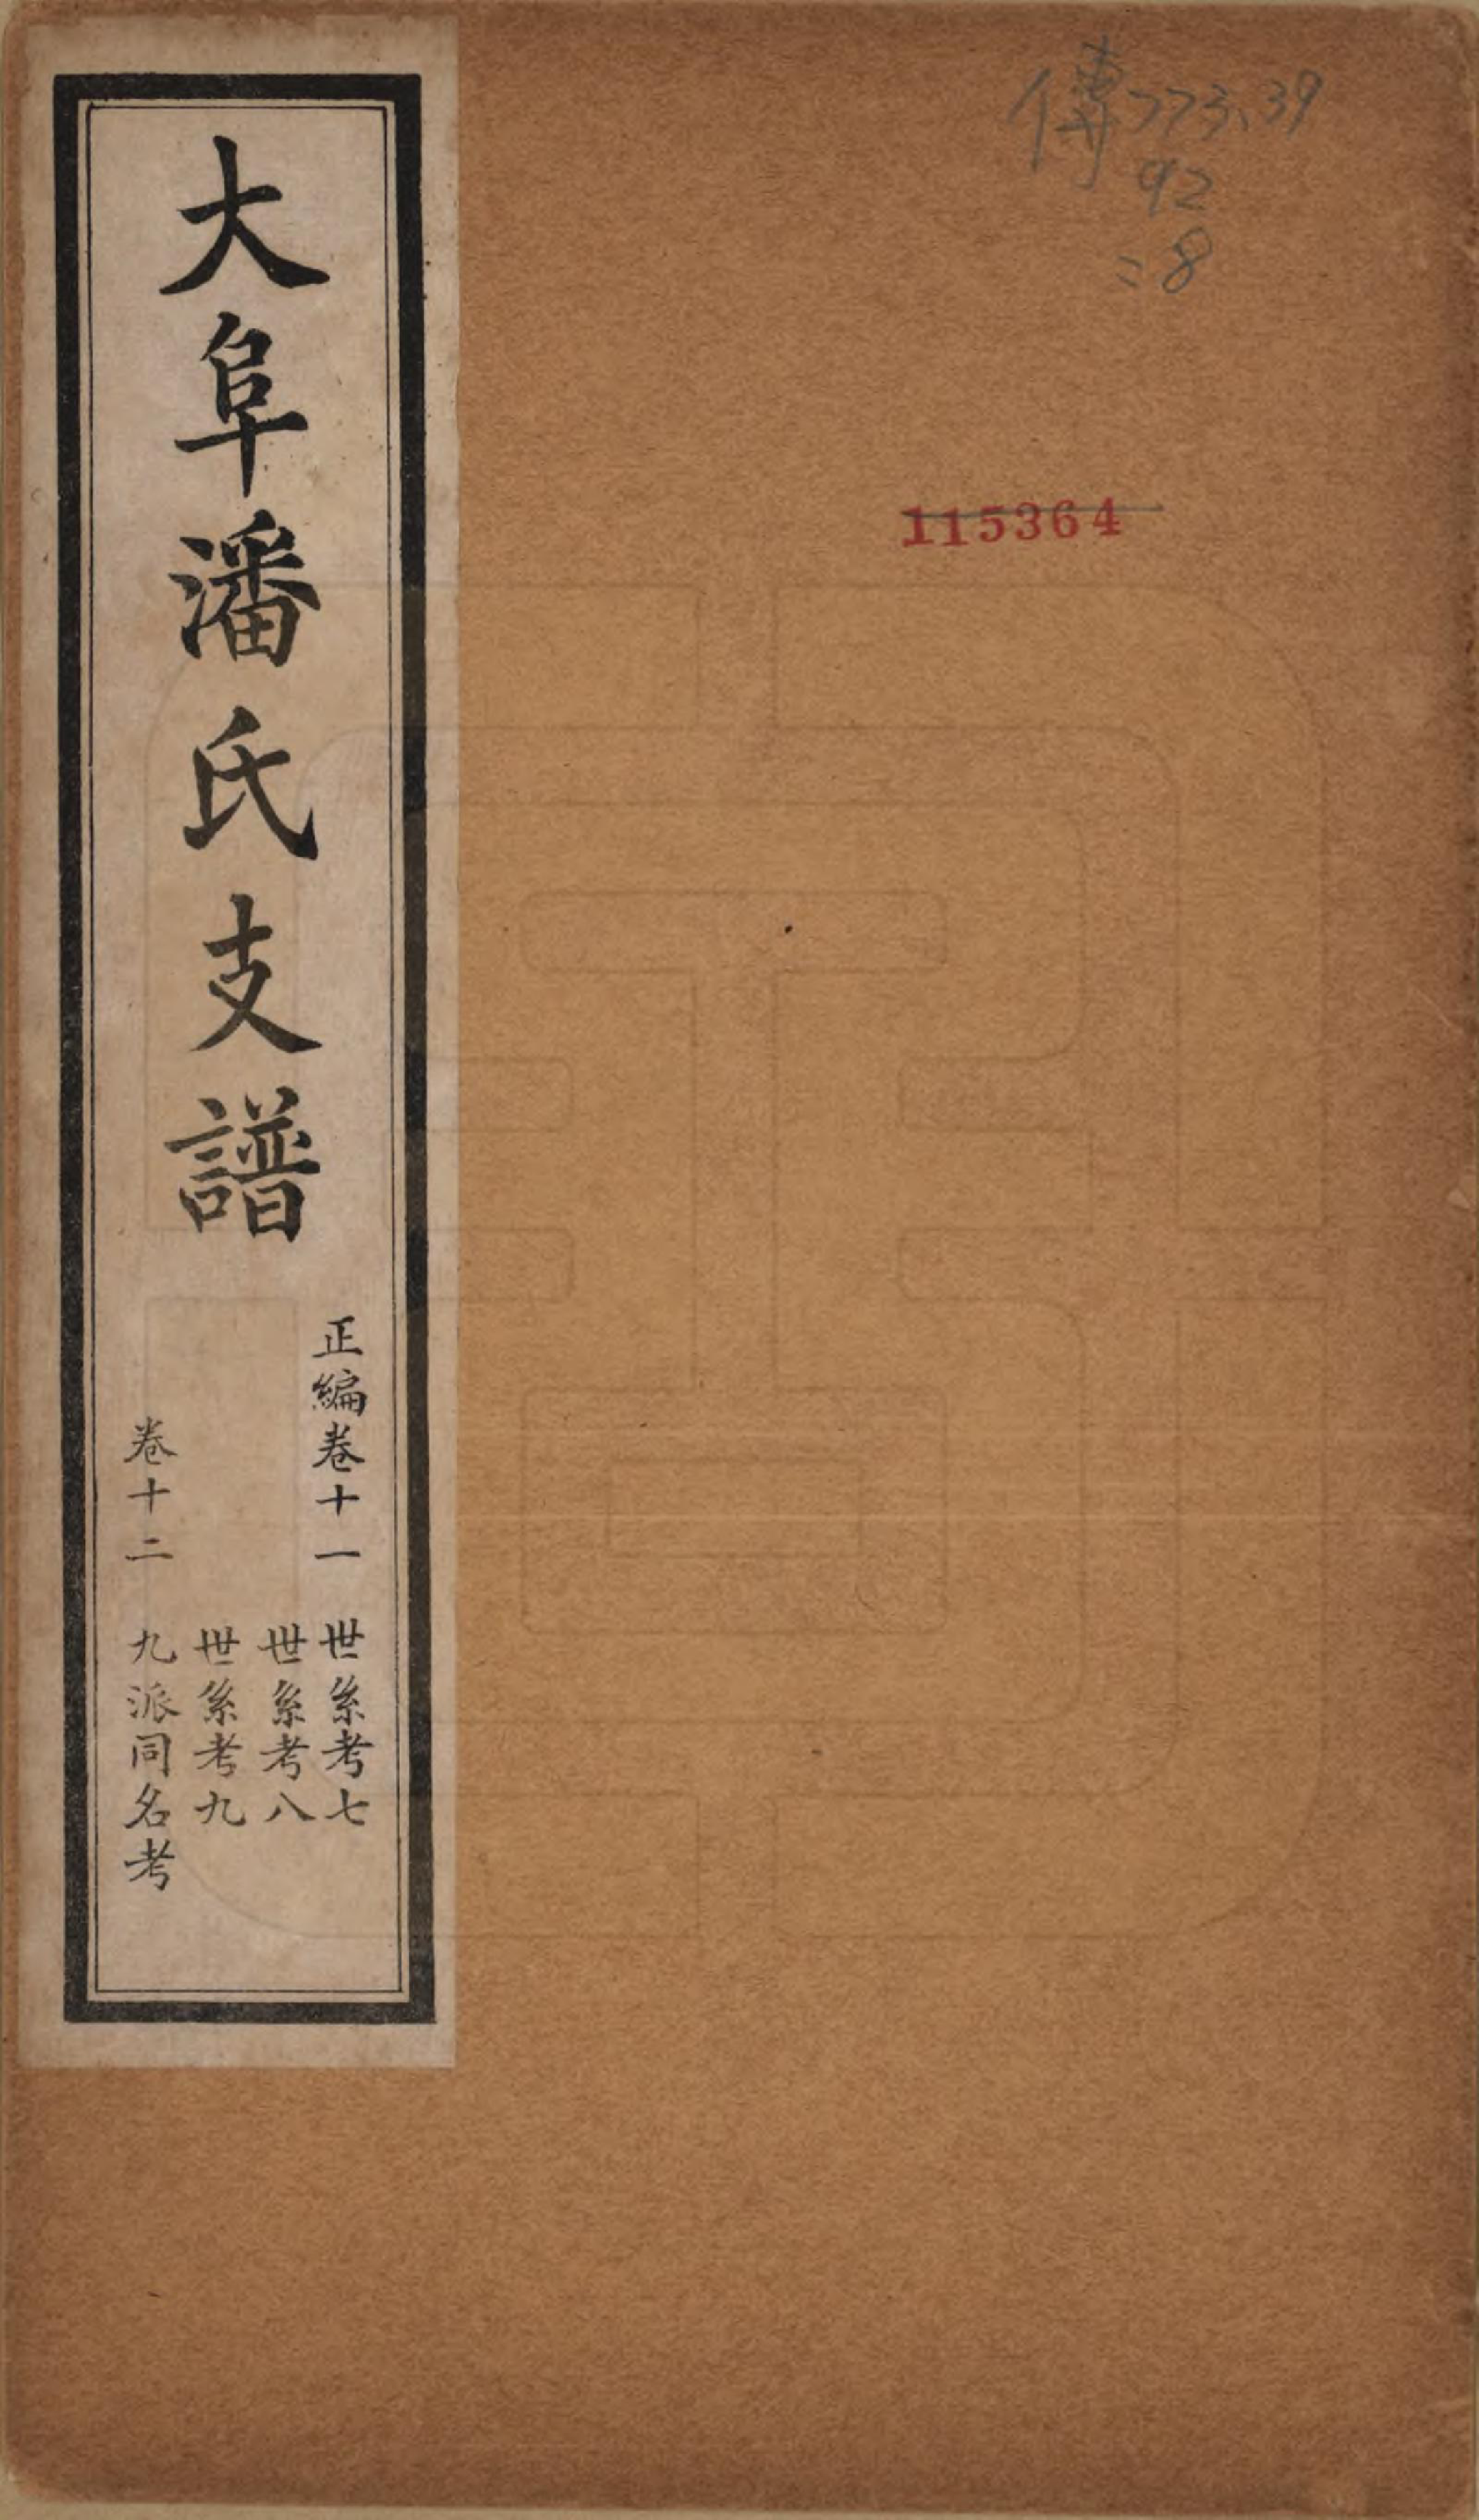 傳773.39
92
:8
115364
大阜潘氏支譜
正編卷十一
世系考七
世系考八
世系考九
卷十二
九派同名考